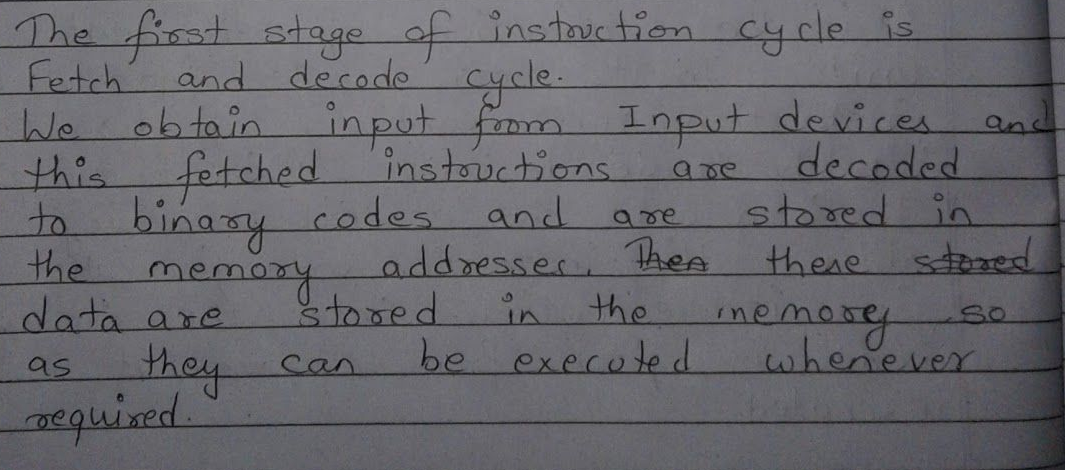 The first stage of instruction cycle is
Fetch and decode cycle.
We obtain input from Input devices and
this fetched instructions are decoded
to binary codes and are stored in
the memory addresses. Then these stored
data are stored in the memory so
as they can be executed whenever
required.